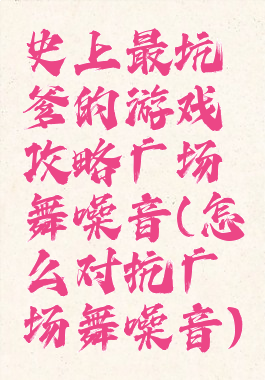 史上最坑
爹的游戏
攻略广场
舞噪音(怎
么对抗广
场舞噪音)